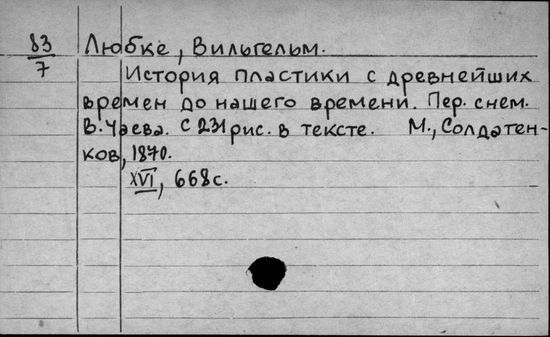 83
7
Любке, Вильгельм.
История пластики с древнейших
времен до нашего времени. Пер. с нем.
В. Чаева. С 231 рис. в тексте. М., Солдатен-
ков, 1870.
XVI, 668 с.